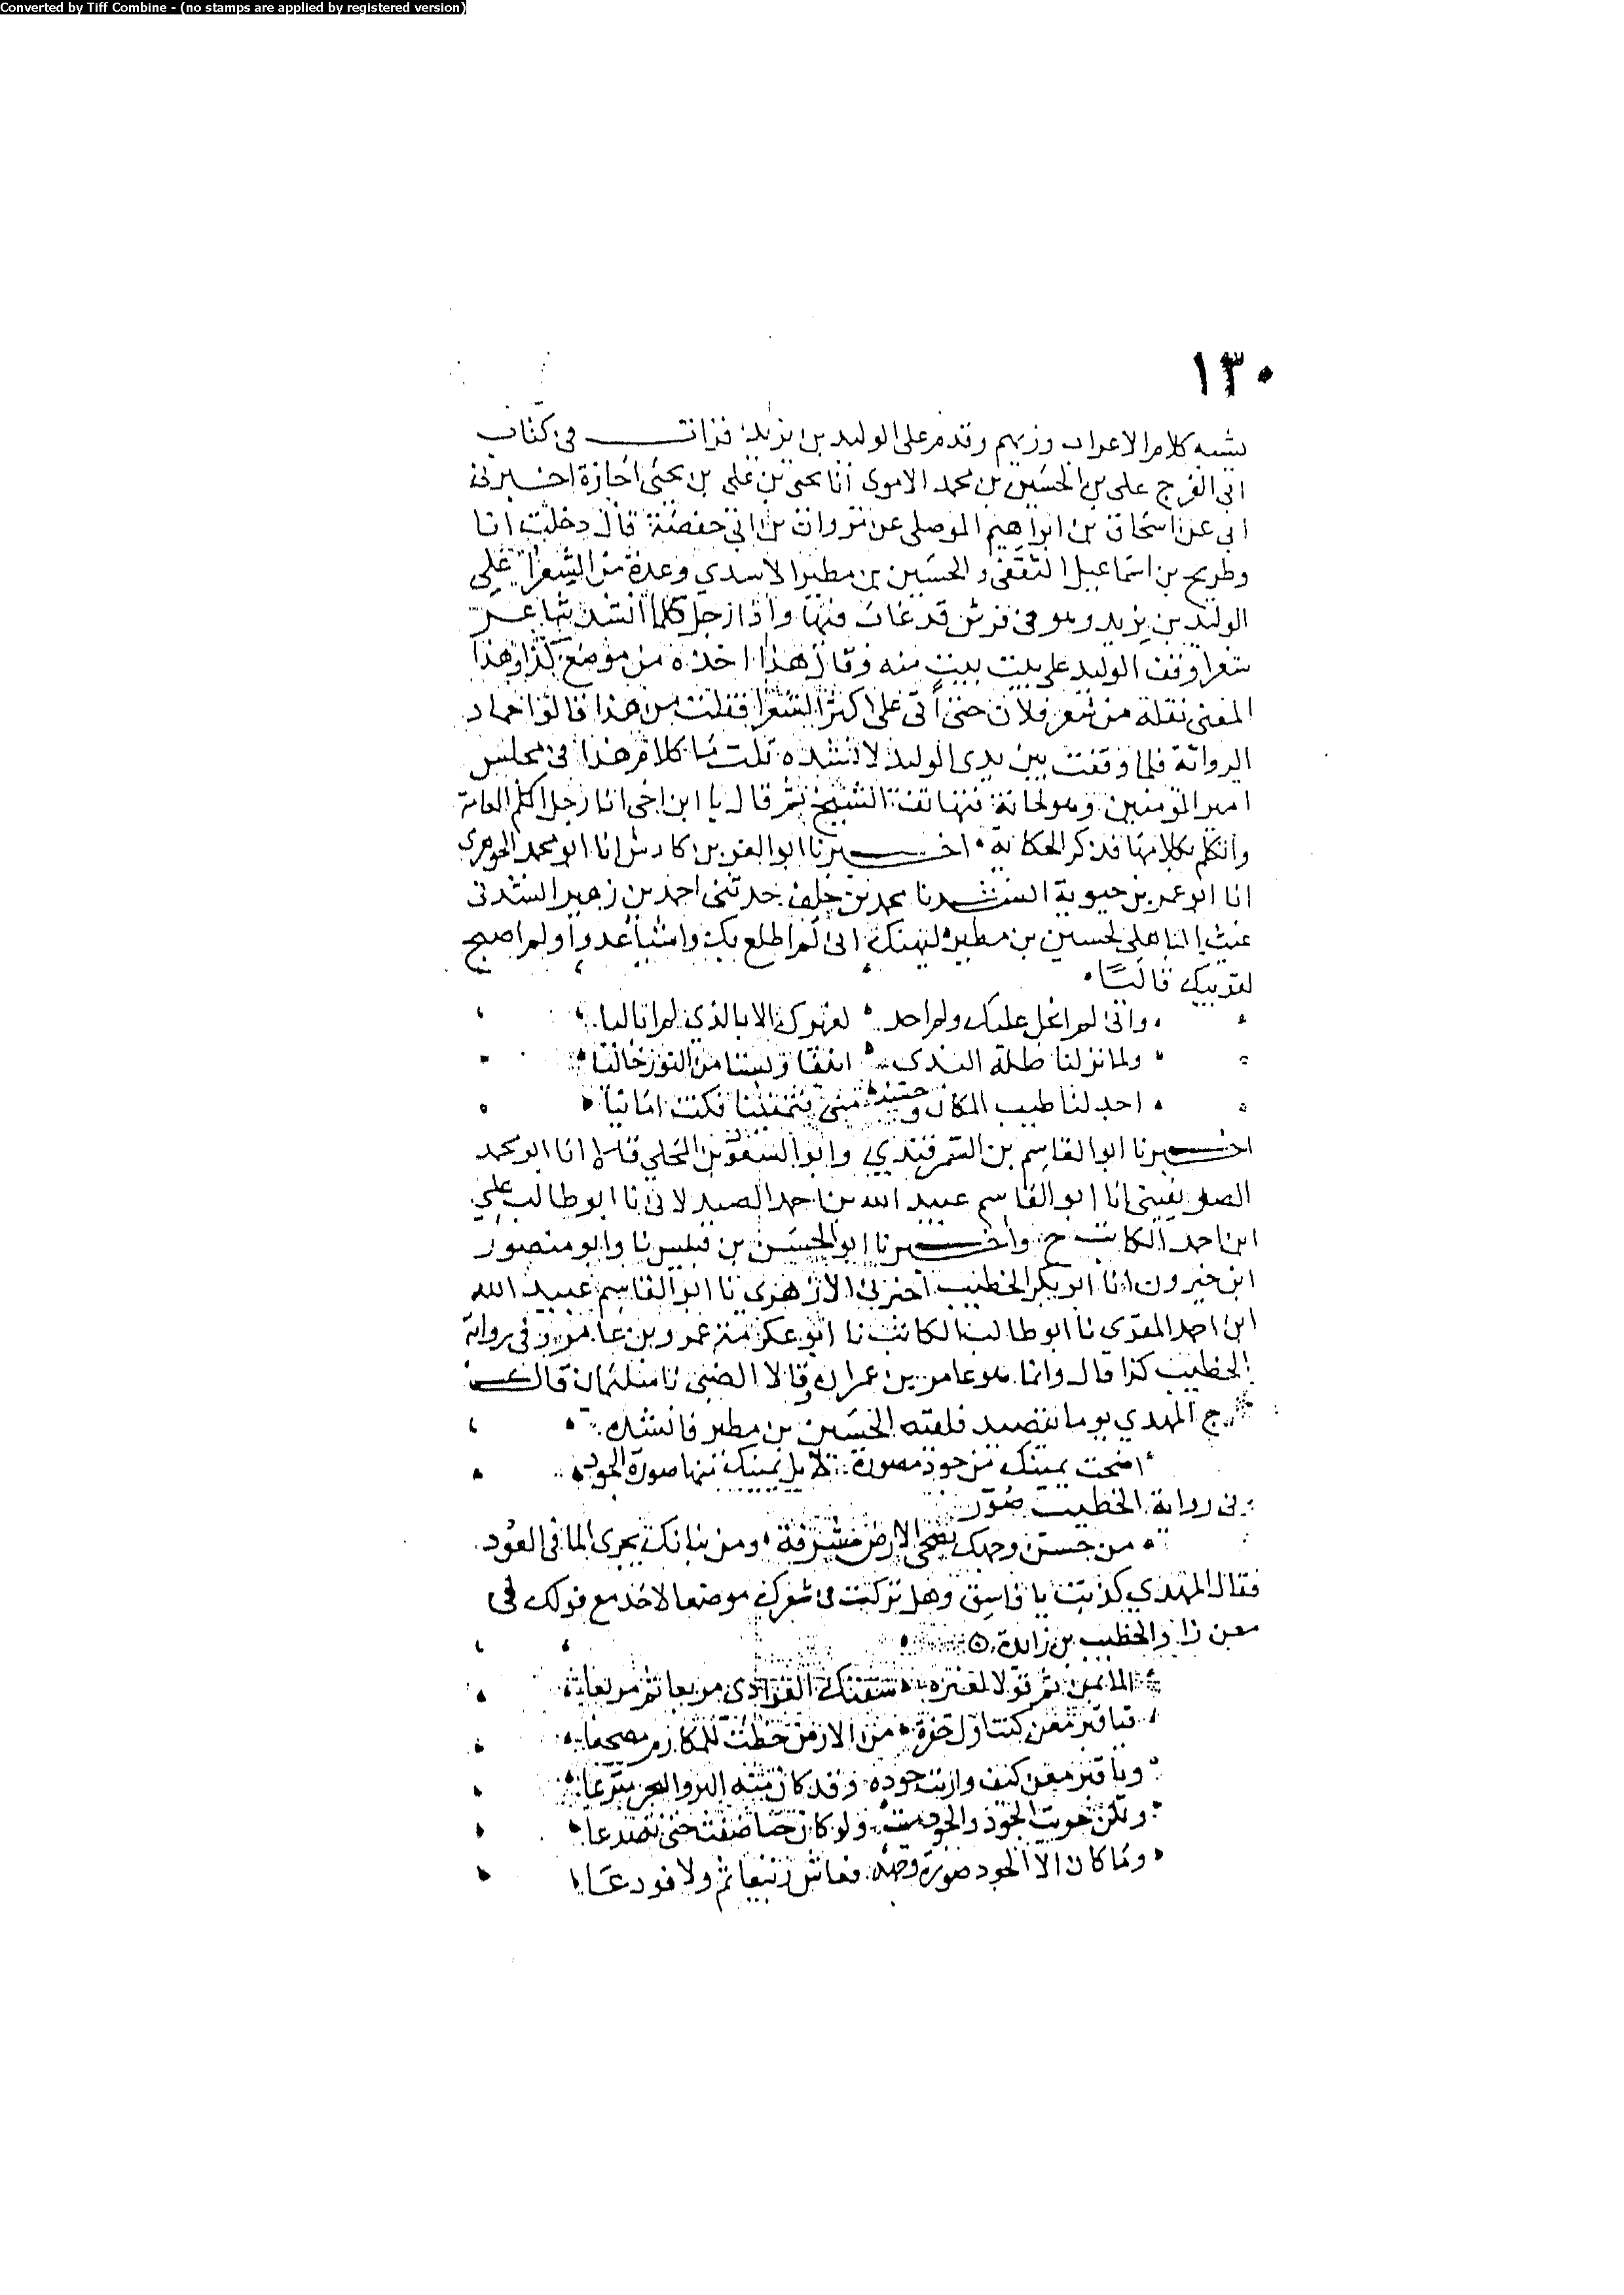 Converted by Tiff Combine - (no stamps are applied by registered version)
١٣٠
يشبه كلام الاعراب وزيهم وقدم على الوليد بن يزيد قرات في كتاب
ابي الفرج علي بن الحسين بن محمد الاموي انا يحيى بن علي بن يحيى اجازة اخبرني
ابي عن اسحاق بن ابراهيم الموصلي عن مروان بن ابي حفصة قال دخلت انا
وطريح بن اسماعيل الثقفي والحسين بن مطير الاسدي وعدة من الشعرا على
الوليد بن يزيد وهو في فرش قد غاب فيها واذا رجل كلما انشد شاعر
شعرا وقف الوليد على بيت بيت منه وقال هذا اخذه من موضع كذا وهذا
المعنى نقله من شعر فلان حتى اتى على اكثر الشعرا فقلت من هذا قالوا حماد
الرواية فلما وقفت بين يدي الوليد لانشده قلت ما كلام هذا في مجلس
امير المومنين وهو لحانة فتهانف الشيخ ثم قال يا ابن اخي انا رجل اكلم العامة
واتكلم بكلامها فذكر الحكاية اخبرنا ابو العز بن كادش انا ابو محمد الجوهري
انا ابو عمر بن حيوية انشدنا محمد بن خلف حدثني احمد بن زهير انشدني
الباهلي لحسين بن مطير ليهنك اني لم اطلع بك واشيا عدوا ولم اصبح
لقربك قاليا
واني لم ابخل عليك ولم اجد لغيرك الا بالذي لم اباليا
ولما نزلنا طله الندى انيقا وبستنا من النور حاليا
اجد لنا طيب المكان وحسنه منى فتمنينا فكنت امانيا
اخبرنا ابو القاسم بن السمرقندي وابو المحلي قالا انا ابو محمد
الصريفيني انا ابو القاسم عبيد الله بن احمد الصيدلاني نا ابو طالب علي
ابن احمد الكاتب ح واخبرنا ابو الحسن بن قبيس نا وابو منصور
ابن خيرون انا ابو بكر الخطيب اخبرني الازهري نا ابو القاسم عبيد الله
ابن احمد المقري نا ابو طالب الكاتب نا ابو عكرمة عمرو بن عامر وفي رواية
الخطيب كذا قال وانما هو عامر بن عمران وقالا الضبي نا سليمان قال خـ
ـرج المهدي يوما يتصيد فلقيه الحسين بن مطير فانشده
اضحت يمينك من جود مصورة لا بل يمينك منها صورة الجود
وفي رواية الخطيب صور
من حسن وجهك تضحي الارض مشرقة ومن بنانك يجري الما في العود
فقال المهدي كذبت يا فاسق وهل تركت في شعرك موضعا لاحد مع قولك في
معن زاد الخطيب بن زايدة
الما بمعن ثم قولا لقبره سقتك الغوادي مربعا ثم مربعا
فيا قبر معن كنت اول حفرة من الارض خطت للمكارم مضجعا
ويا قبر معن كيف واريت جوده وقد كان منه البر والبحر مترعا
ولكن حويت الجود والجود ميت ولو كان حيا ضقت حتى تصدعا
وما كان الا الجود صورة وجهه فعاش ربيعا ثم ولا فودعا